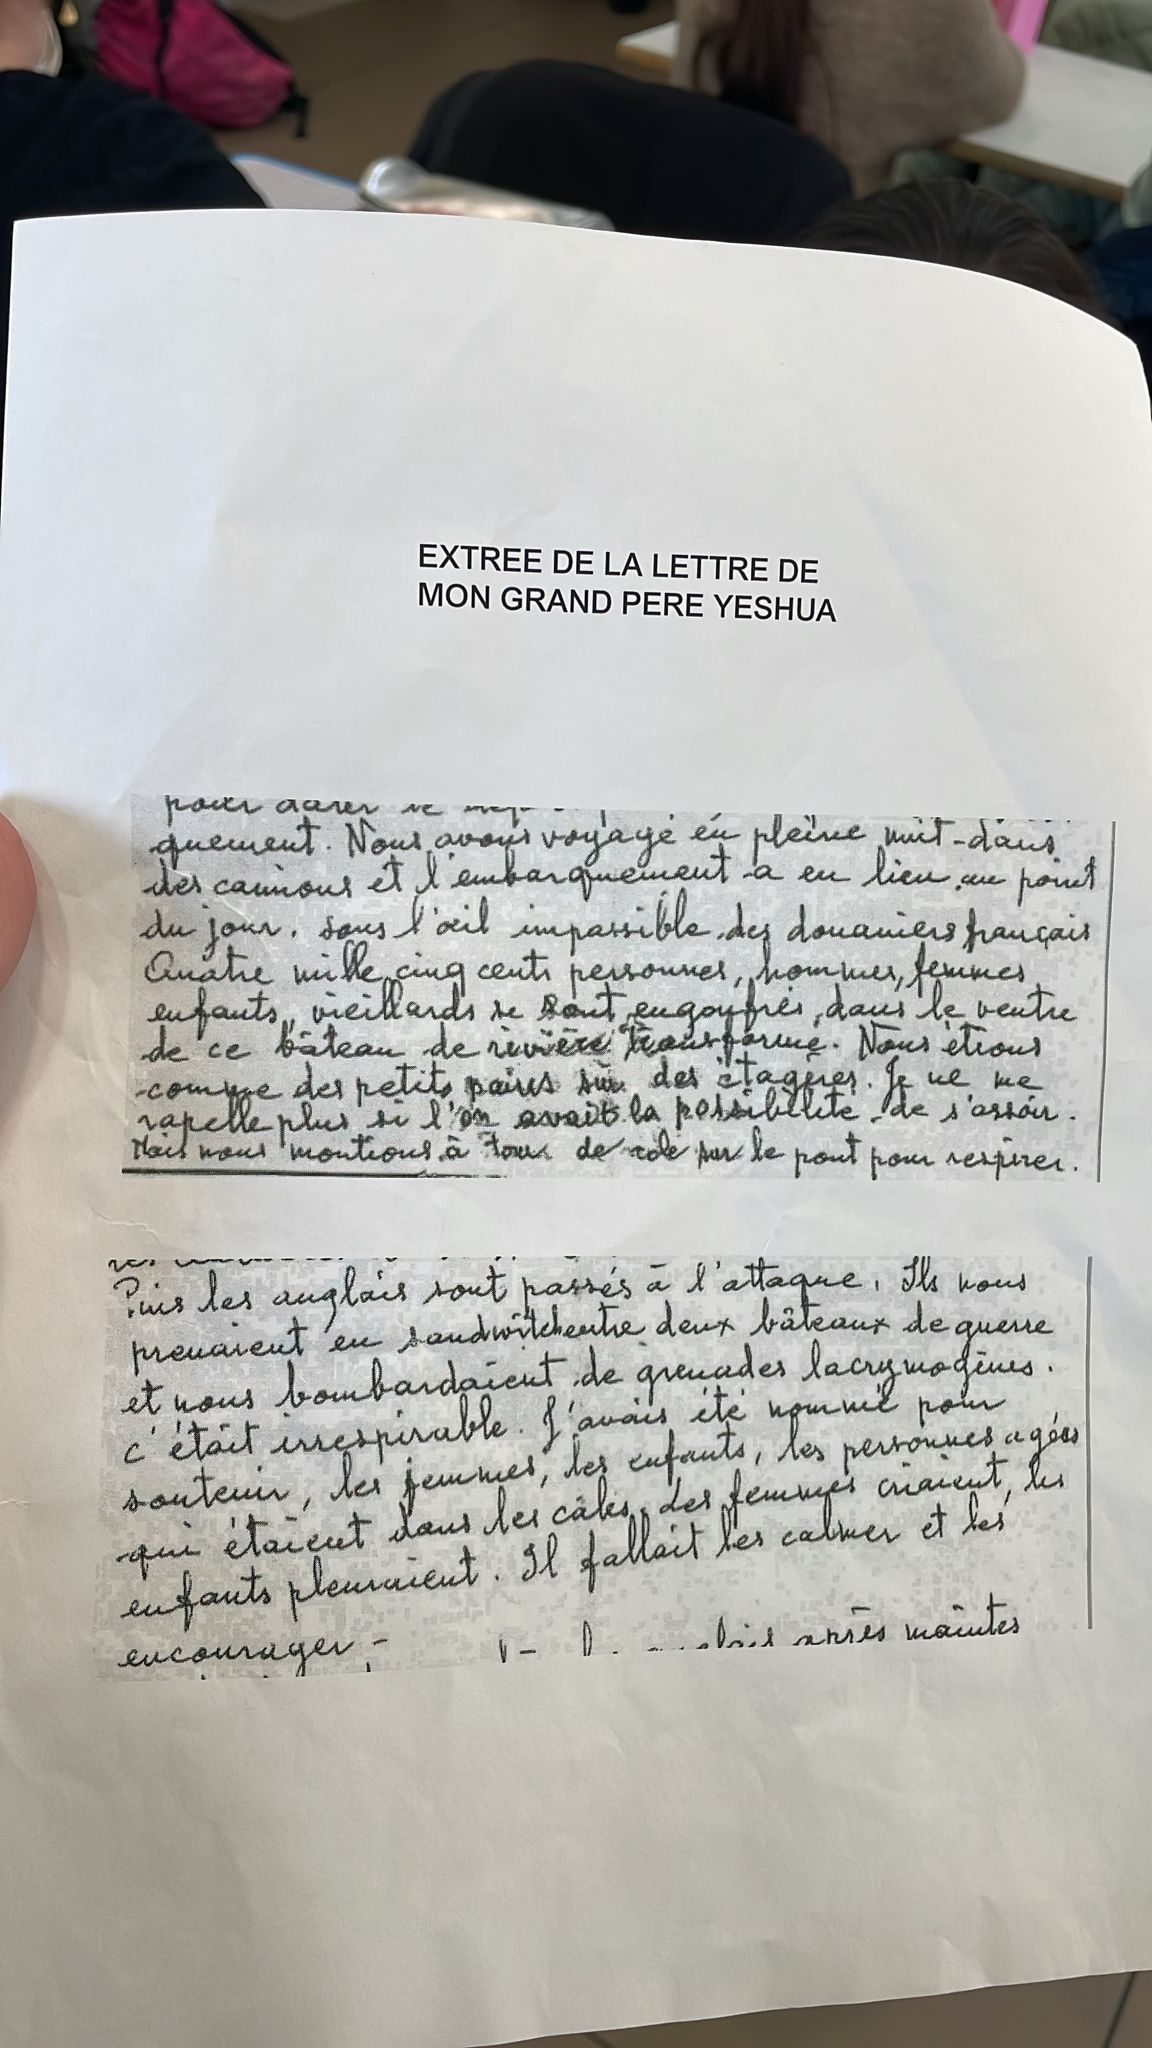 EXTREE DE LA LETTRE DE
MON GRAND PERE YESHUA
quement. Nous avons voyagé en pleine nuit-dans
des camions et l'embarquement a eu lieu au point
du jour. sous l'œil impassible des douaniers français
Quatre mille cinq cents personnes, hommes, femmes
enfants, vieillards se sont engoufrés dans le ventre
de ce bâteau de rivière transformé. Nous étions
comme des petits pains sur des étagères. Je ne me
rapelle plus si l'on avait la possibilité de s'assoir.
Mais nous montions à tour de role sur le pont pour respirer.
Puis les anglais sont passés à l'attaque. Ils nous
prenaient en sandwitch entre deux bâteaux de guerre
et nous bombardaient de grenades lacrymogènes.
c'était irrespirable. J'avais été nommé pour
soutenir, les femmes, les enfants, les personnes agées
qui étaient dans les câles. des femmes criaient, les
enfants pleuraient. Il fallait les calmer et les
encourager -
après maintes